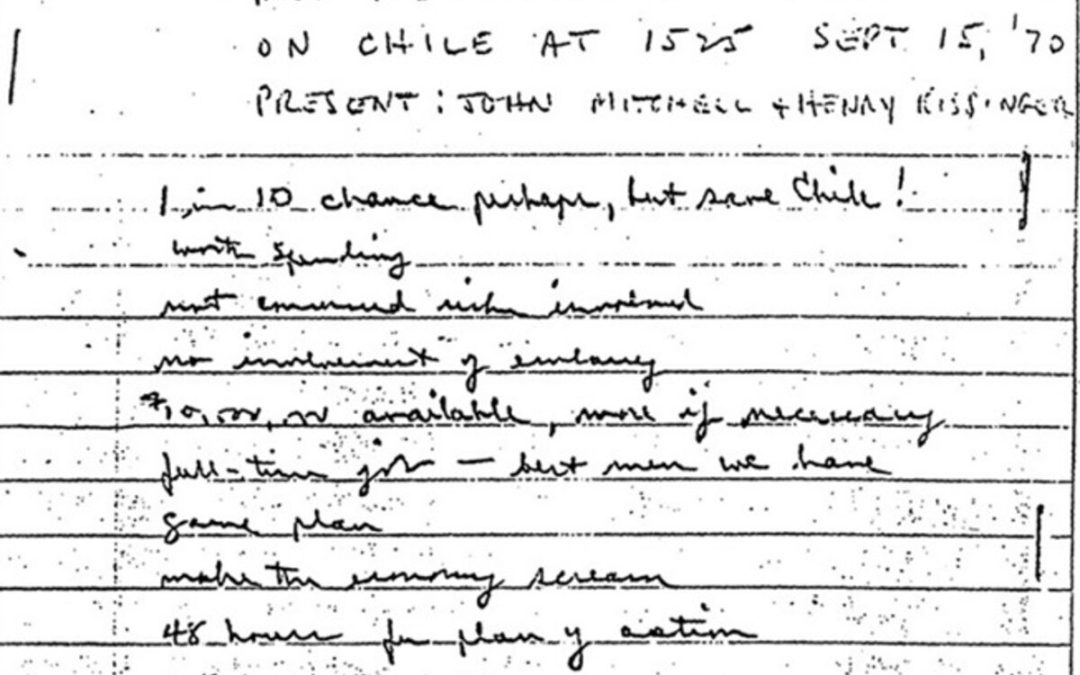 ON CHILE AT 1525 SEPT 15, '70
PRESENT: JOHN MITCHELL + HENRY KISSINGER
1 in 10 chance perhaps, but save Chile!
worth spending
not concerned risks involved
no involvement of embassy
$10,000,00 available, more if necessary
full-time job — best men we have
game plan
make the economy scream
48 hours for plan of action